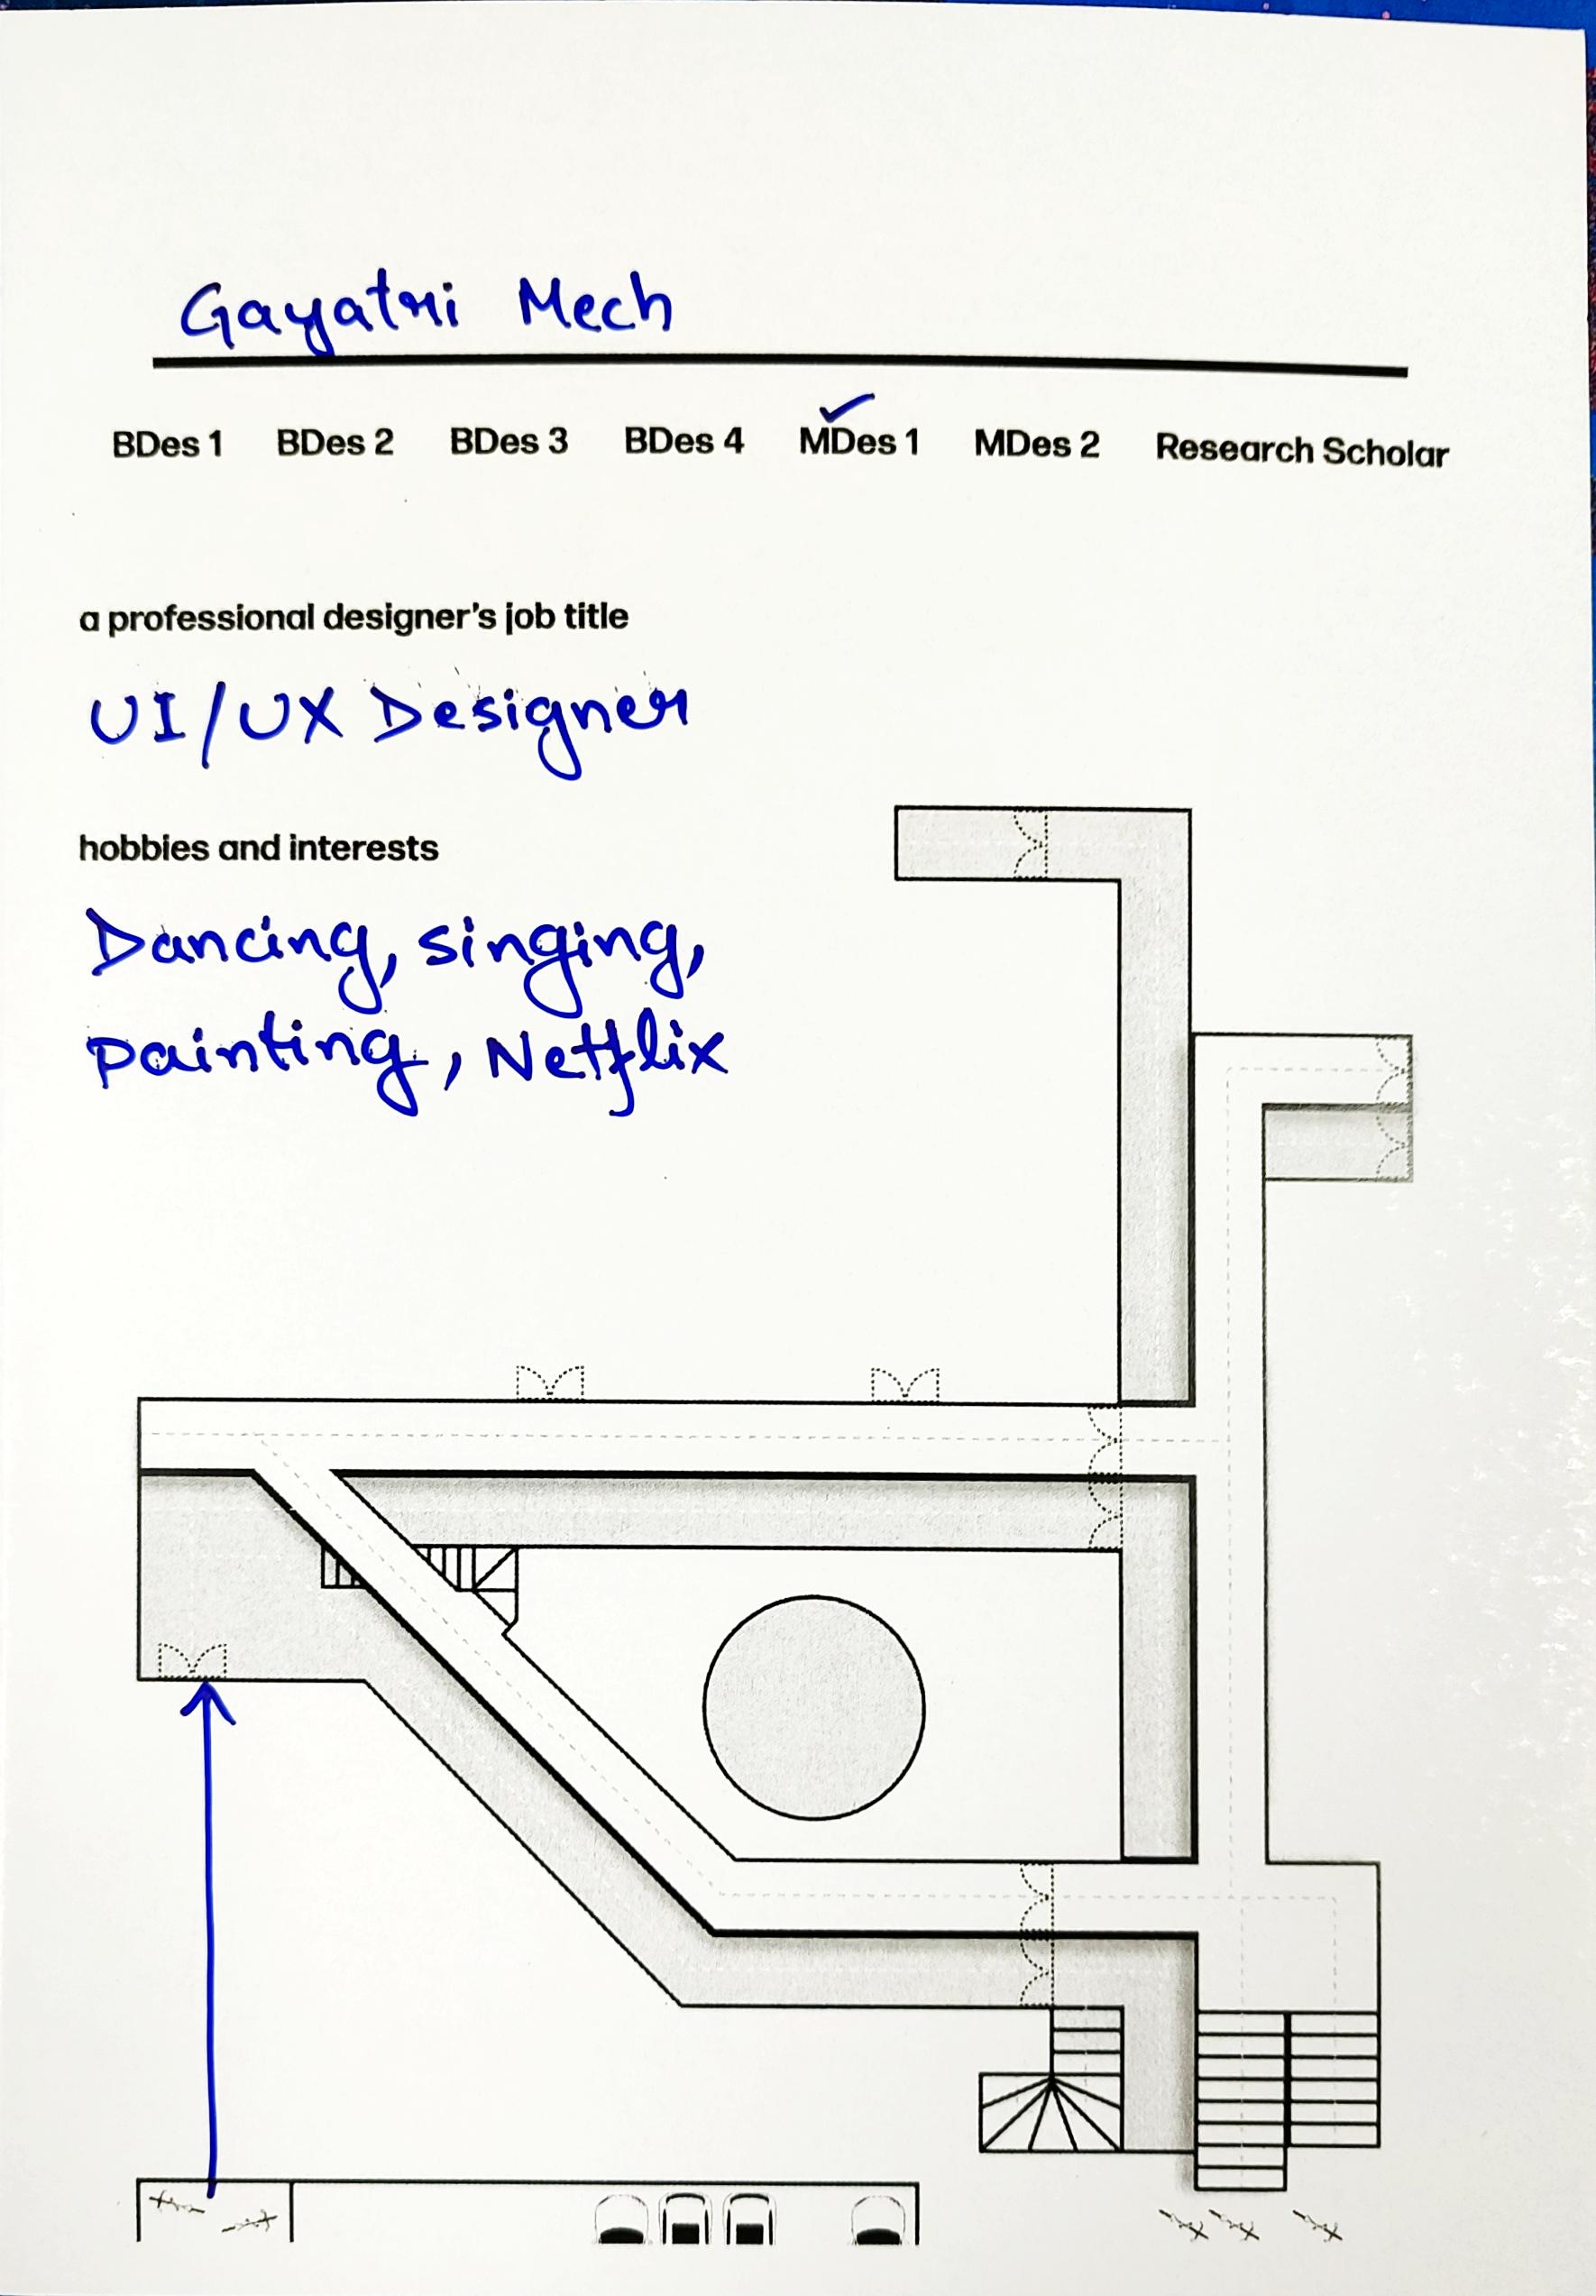 Gayatri Mech
BDes 1 BDes 2 BDes 3 BDes 4 MDes 1 MDes 2 Research Scholar
a professional designer's job title
UI/UX Designer
hobbies and interests
Dancing, singing,
painting, Netflix